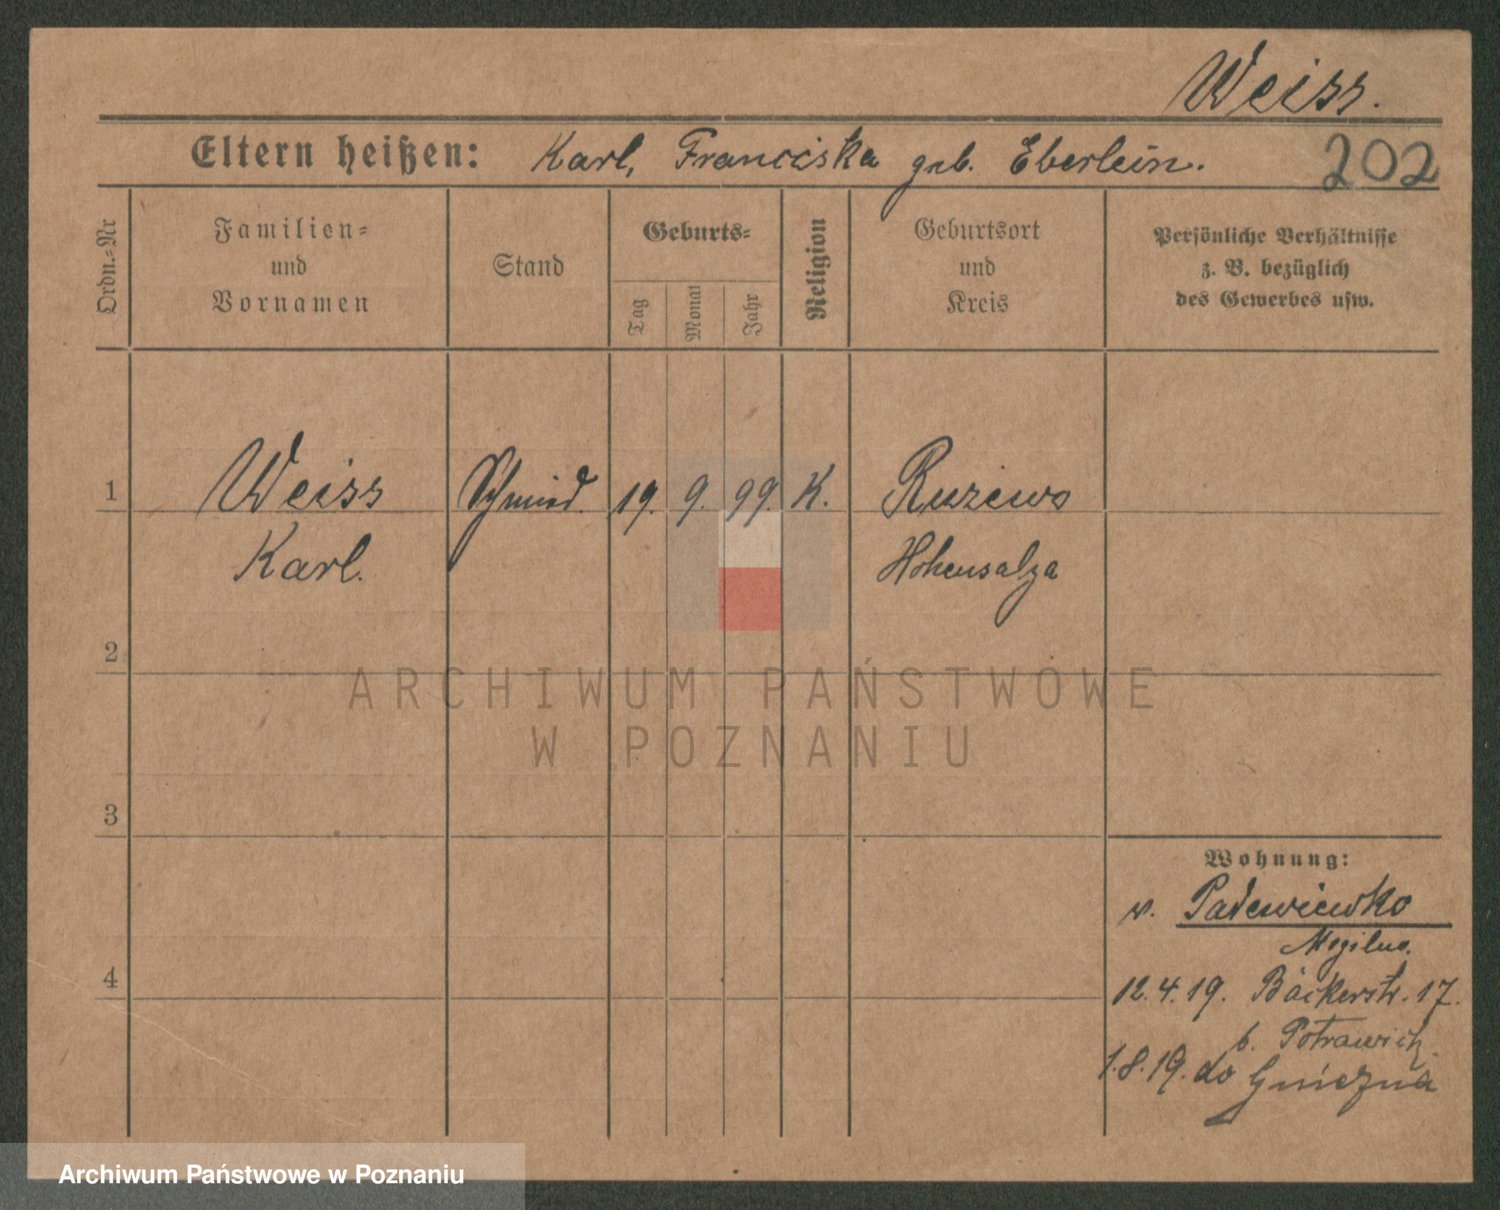 Weiss.
Eltern heißen: Karl, Franciska geb. Eberlein.
202
Ordn.-Nr
Familien-
und
Vornamen
Stand
Geburts-
Tag
Monat
Jahr
Religion
Geburtsort
und
Kreis
Persönliche Verhältnisse
z. B. bezüglich
des Gewerbes usw.
1 Weiss Schmied. 19. 9. 99. K. Ruzewo
Karl. Hohensalza
2
3
4
ARCHIWUM PAŃSTWOWE
W POZNANIU
Wohnung:
v. Padewiewko
Mogilno.
12.4.19. Bäckerstr. 17.
b. Potrawich
1.8.19. do Gniezna
Archiwum Państwowe w Poznaniu